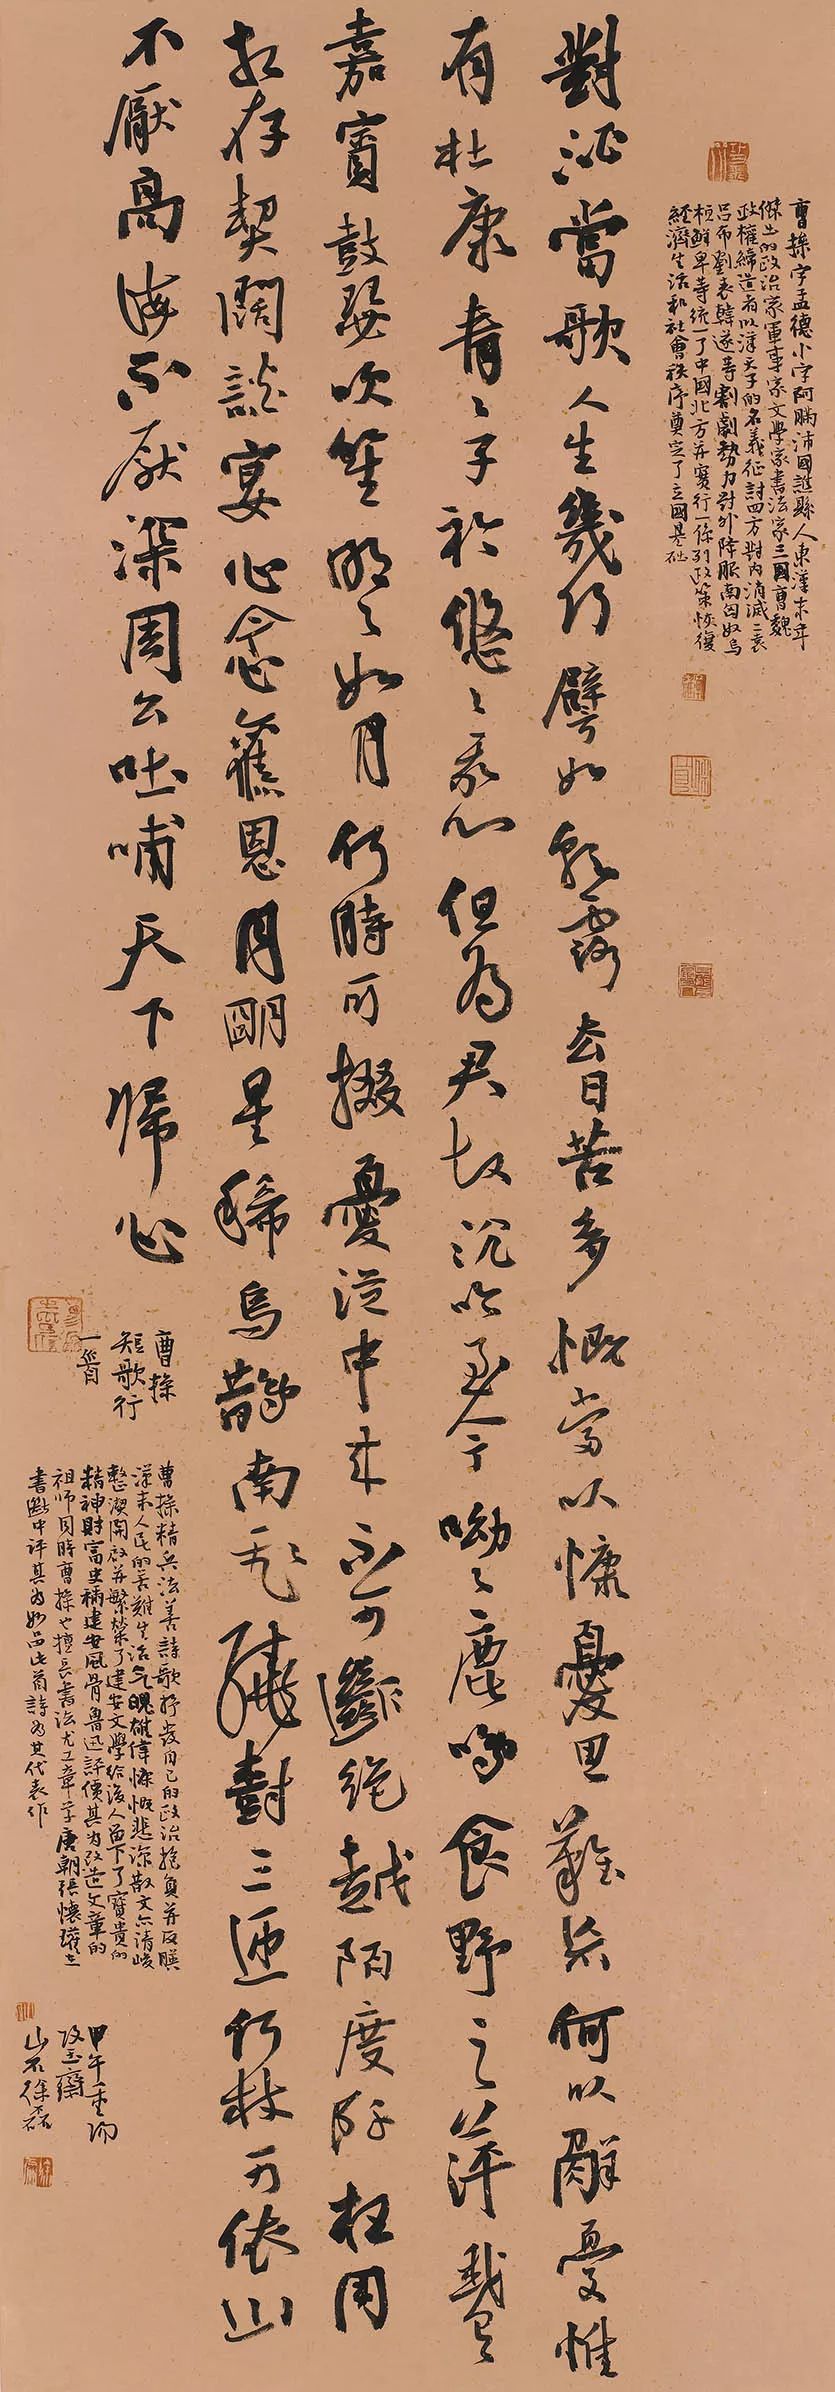 曹操字孟德小字阿瞞沛國譙縣人東漢末年
傑出的政治家軍事家文學家書法家三國曹魏
政權締造者以漢天子的名義征討四方對內消滅二袁
呂布劉表韓遂等割劇勢力對外降服南匈奴烏
桓鮮卑等統一了中國北方并實行一係列政策恢復
經濟生活和社會秩序奠定了立國基础
對酒當歌人生幾何譬如朝露去日苦多慨當以慷憂思難忘何以解憂惟
有杜康青〻子衿悠〻我心但為君故沉吟至今呦〻鹿鳴食野之苹我有
嘉賓鼓瑟吹笙明〻如月何時可掇憂從中來不可斷絕越陌度阡枉用
相存契闊談宴心念舊恩月明星稀烏鵲南飛繞樹三匝何枝可依山
不厭高海不厭深周公吐哺天下歸心
曹操
短歌行
一首
曹操精兵法善詩歌抒發自己的政治抱負并反映
漢末人民的苦難生活气魄雄偉慷慨悲涼散文亦清峻
整潔開啟并繁榮了建安文學給後人留下了寶貴的
精神財富史稱建安風骨魯迅評價其為改造文章的
祖師同時曹操也擅長書法尤工章草唐朝張懷瓘在
書斷中評其為妙品此首詩為其代表作
甲午重陽
攻玉齋
山石徐磊